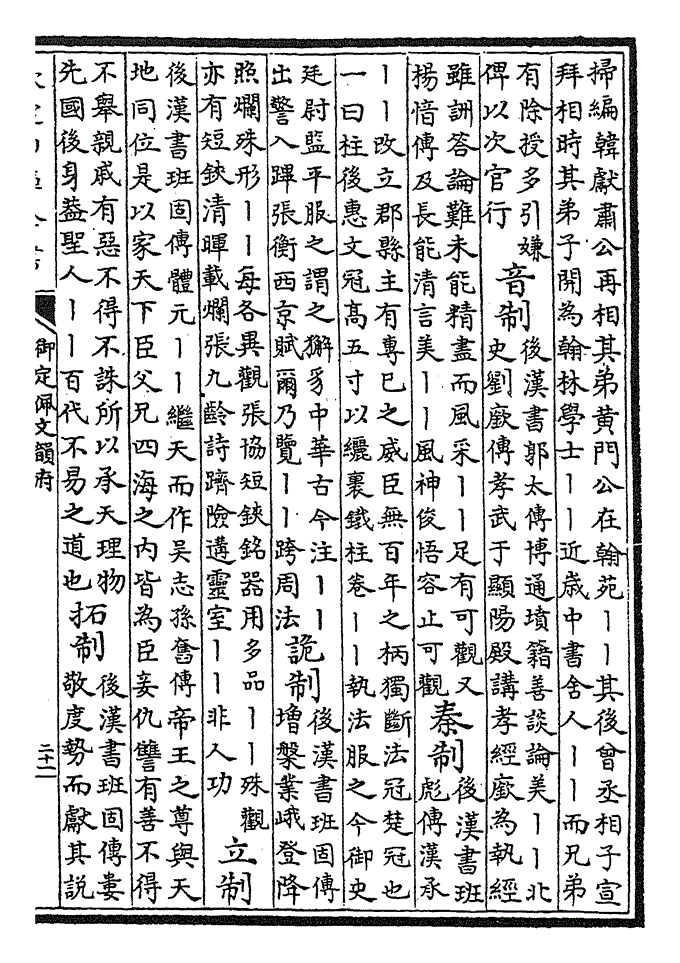 掃編韓獻肅公再相其弟黃門公在翰苑丨丨其後曾丞相子宣
拜相時其弟子開為翰林學士丨丨近歲中書舍人丨丨而兄弟
有除授多引嫌
碑以次官行
音制
後漢書郭太傳博通墳籍善談論美丨丨北
史劉廞傳孝武于顯陽殿講孝經廞為執經
雖詶答論難未能精盡而風采丨丨足有可觀又
揚愔傳及長能清言美丨丨風神俊悟容止可觀
秦制
後漢書班
彪傳漢承
丨丨改立郡縣主有專已之威臣無百年之柄獨斷法冠楚冠也
一曰柱後惠文冠高五寸以纚裹鐵柱卷丨丨執法服之今御史
廷尉監平服之謂之獬豸中華古今注丨丨
出警入蹕張衡西京賦爾乃覽丨丨跨周法
詭制
後漢書班固傳
增槃業峨登降
照爛殊形丨丨每各異觀張協短鋏銘器用多品丨丨殊觀
亦有短鋏清暉載爛張九齡詩躋險遘靈室丨丨非人功
立制
後漢書班固傳體元丨丨繼天而作吳志孫奮傳帝王之尊與天
地同位是以家天下臣父兄四海之內皆為臣妾仇讐有善不得
不舉親戚有惡不得不誅所以承天理物
先國後身蓋聖人丨丨百代不易之道也
拓制
後漢書班固傳婁
敬度勢而獻其說
御定佩文韻府
二十一